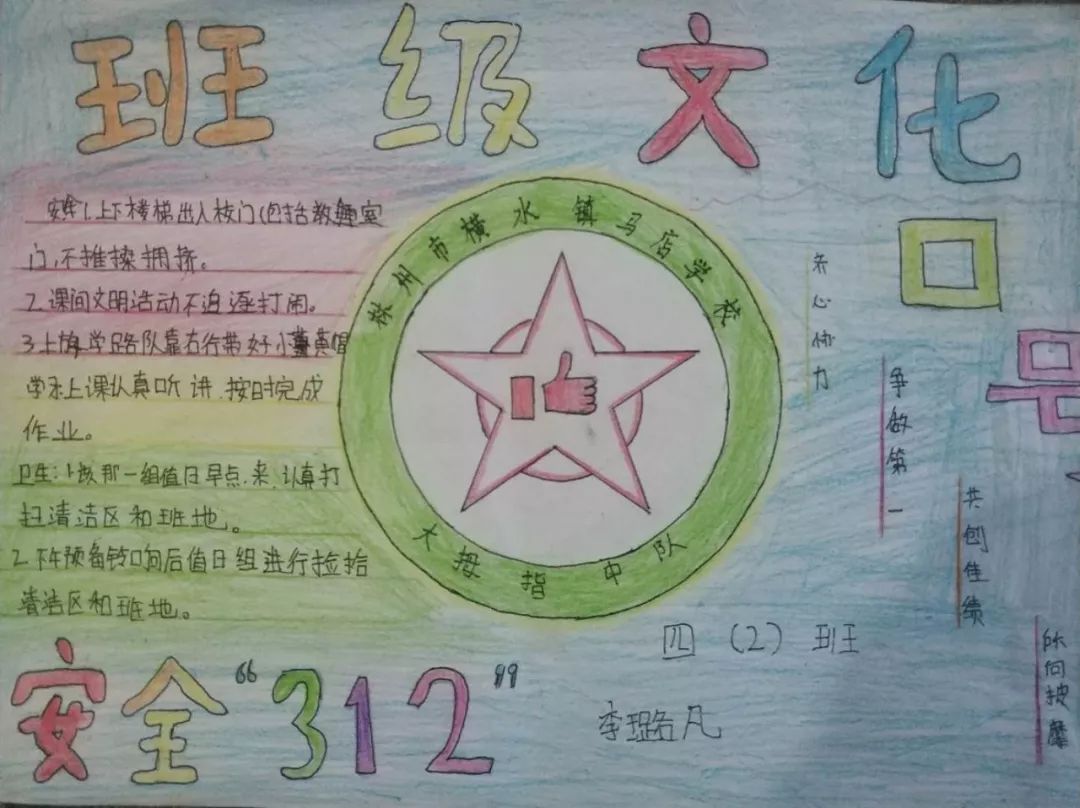 班级文化
安全1.上下楼梯出入校门(包括教室
门,不推搡拥挤。
2.课间文明活动不追逐打闹。
3.上放学路队靠右行带好小黄帽
学术上课认真听讲.按时完成
作业。
卫生:1.该那一组值日早点.来,认真打
扫清洁区和班地。
2.下午预备铃响后值日组进行捡拾
清洁区和班地。
安全“312”
林州市横水镇马店学校
大拇指中队
四(2)班
李璐凡
口号
齐心协力
争做第一
共创佳绩
所向披靡